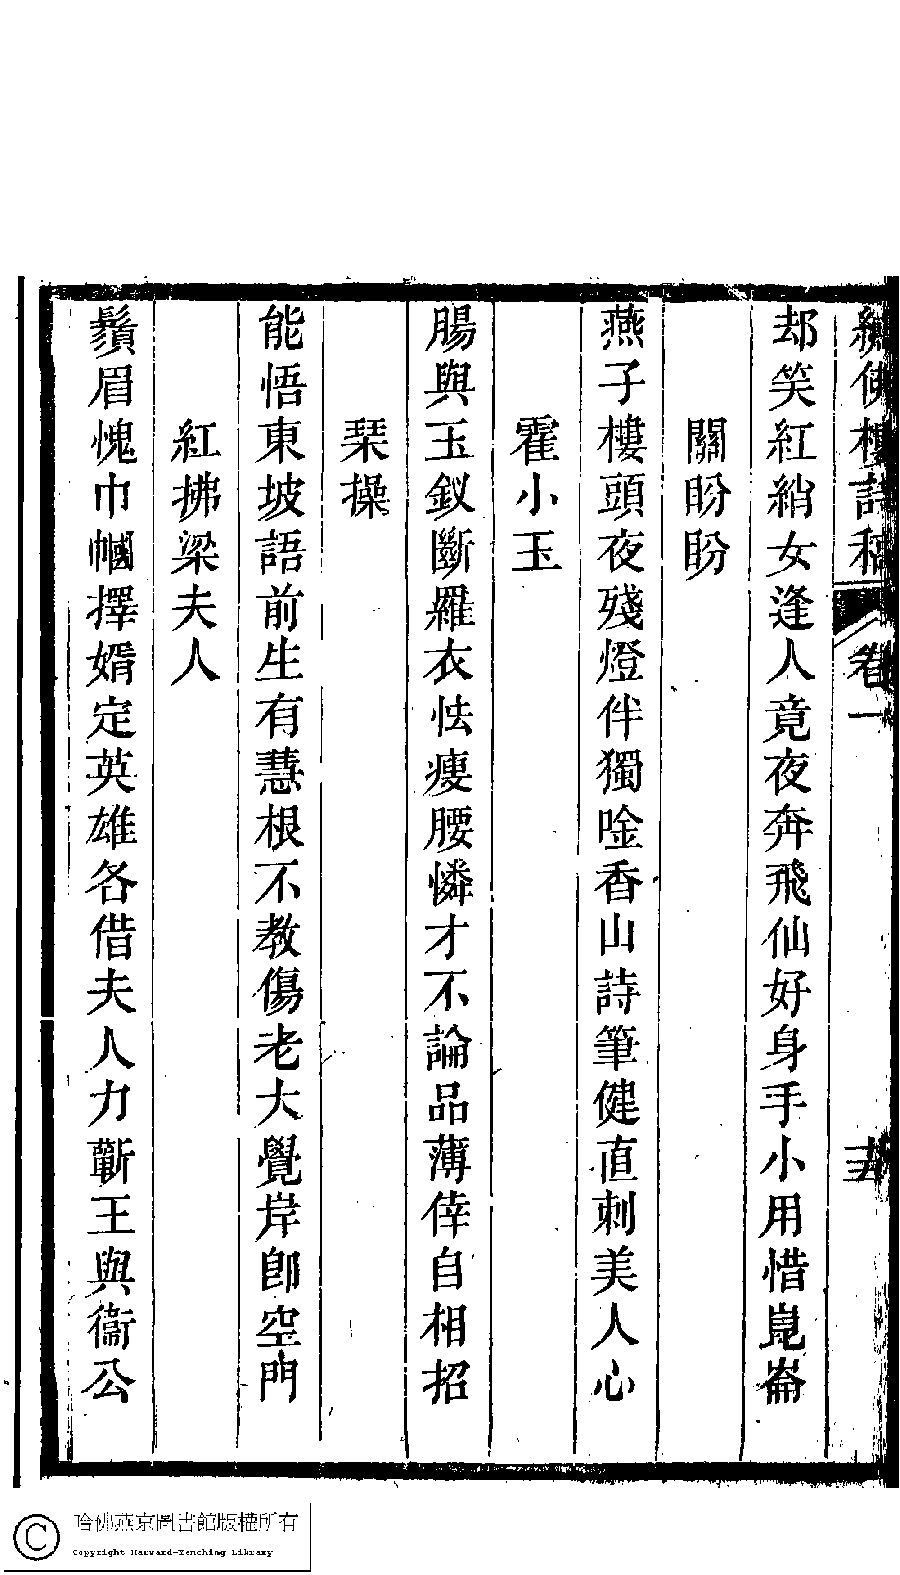 繡佛樓詩稿 卷一
却笑紅綃女逢人竟夜奔飛仙好身手小用惜崑崙
關盼盼
燕子樓頭夜殘燈伴獨唫香山詩筆健直刺美人心
霍小玉
腸與玉釵斷羅衣怯瘦腰憐才不論品薄倖自相招
琹操
能悟東坡語前生有慧根不教傷老大覺岸卽空門
紅拂梁夫人
鬚眉愧巾幗擇婿定英雄各借夫人力蘄王與衞公
哈佛燕京圖書館版權所有
Copyright Harvard-Yenching Library